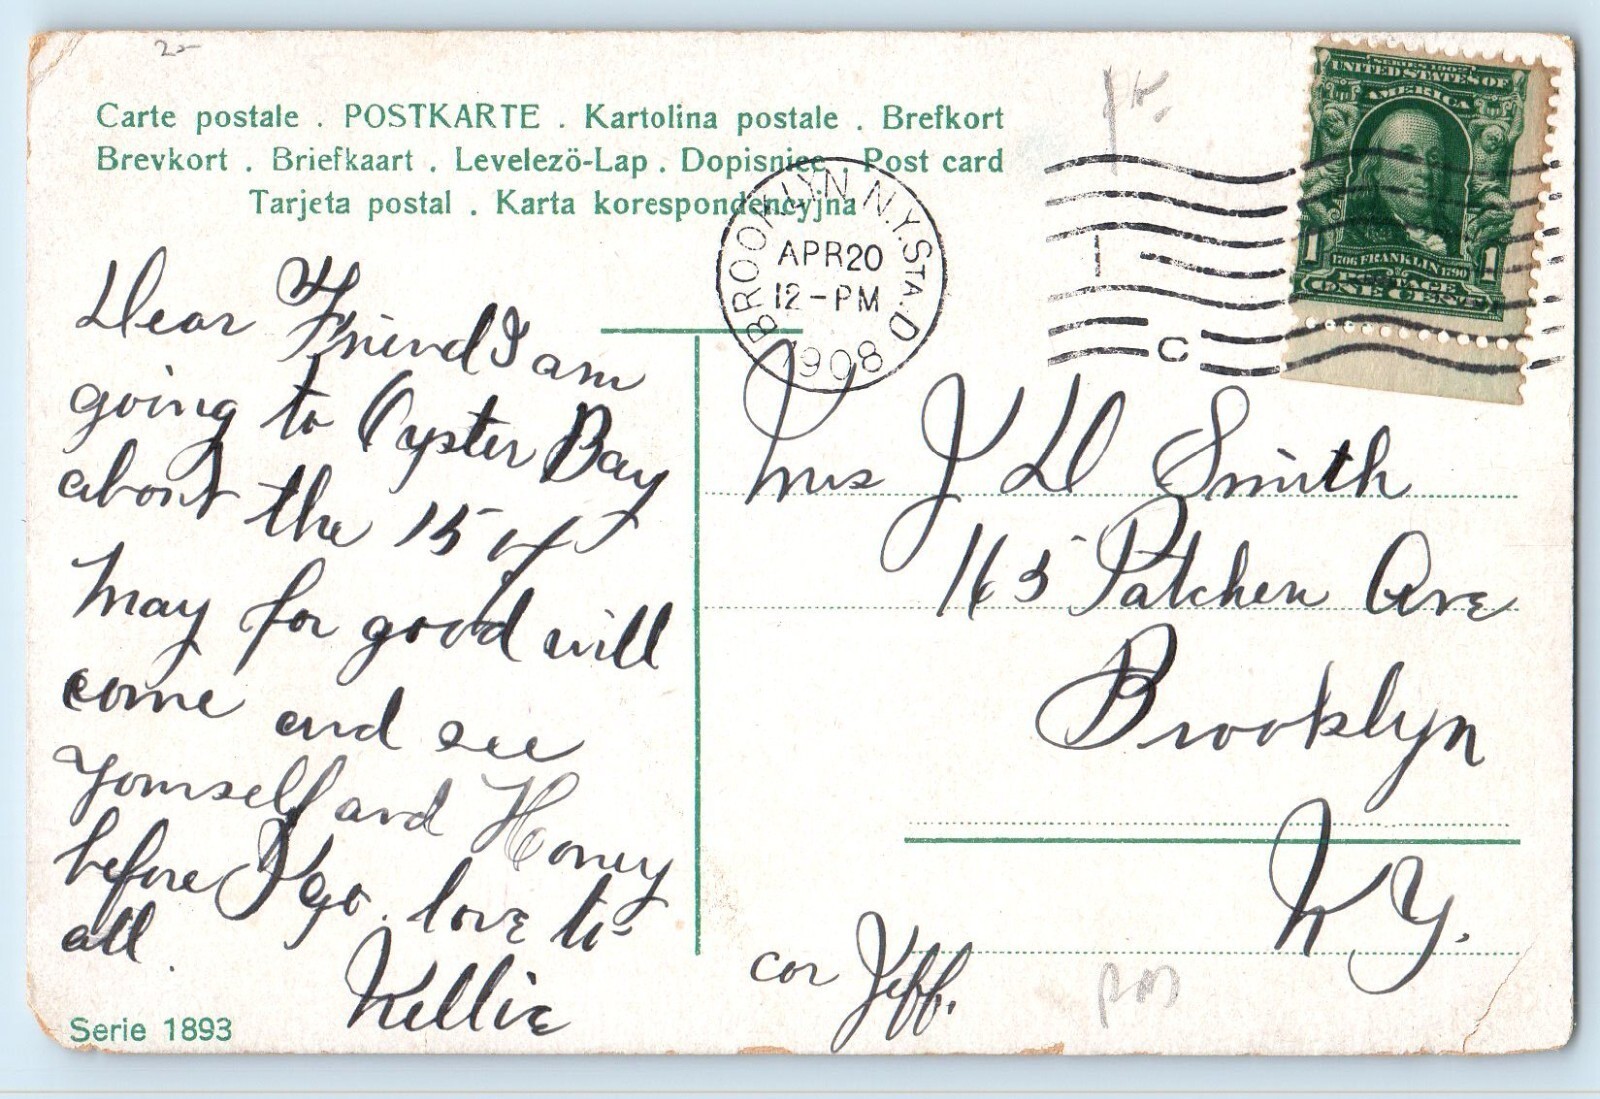 Carte postale . POSTKARTE . Kartolina postale . Brefkort
Brevkort . Briefkaart . Levelezö-Lap . Dopisnice . Post card
Tarjeta postal . Karta korespondencyjna
BROOKLYN N.Y. STA. D
APR 20
12-PM
1908
1
C
SERIES 1902
UNITED STATES OF
AMERICA
1706 FRANKLIN 1790
1 1
POSTAGE
ONE CENT
Dear Friend I am
going to Oyster Bay
about the 15 of
May for good will
come and see
yourself and Honey
before I go. love to
all.
Nellie
Mrs J D Smith
165 Patchen Ave
Brooklyn
N Y.
cor Jeff.
Serie 1893